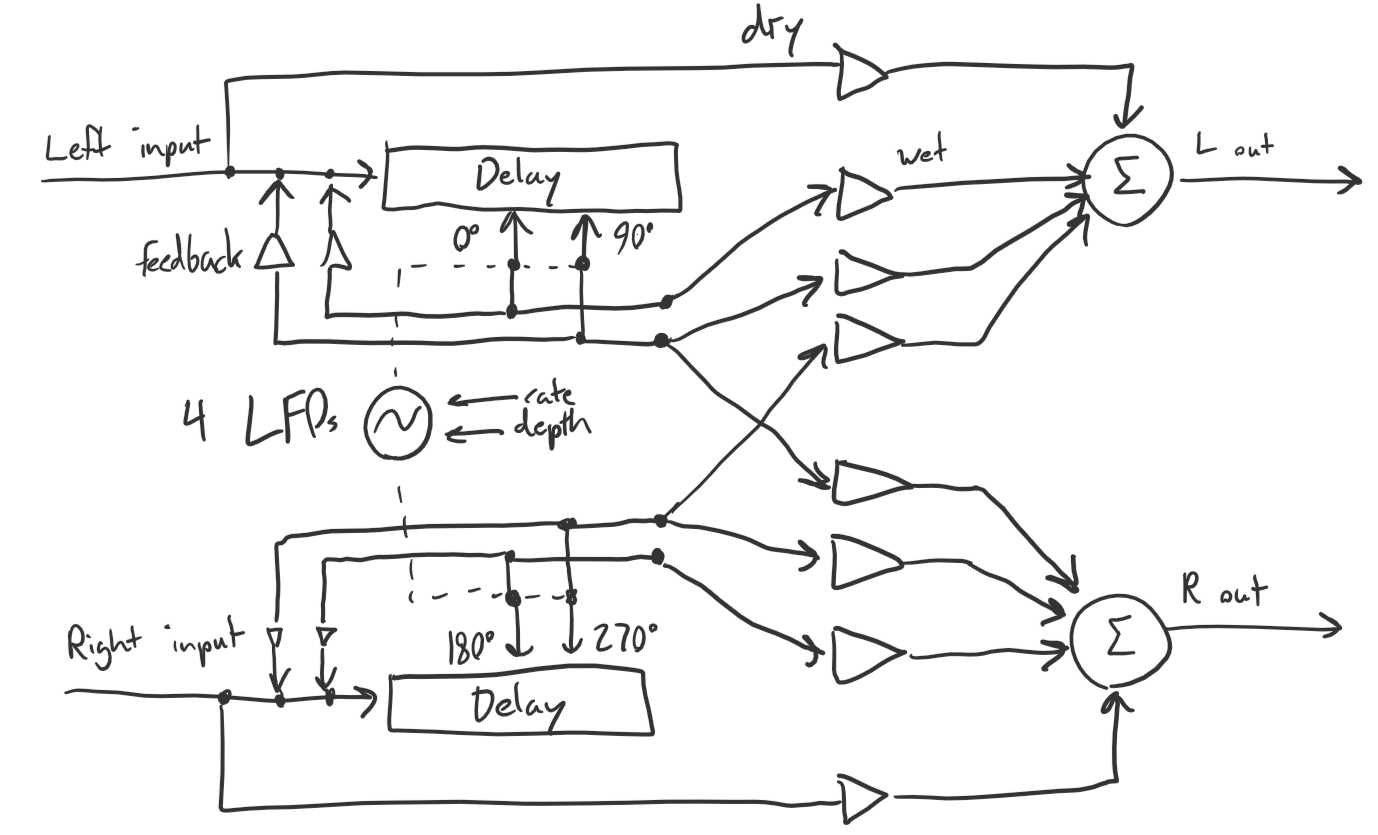 dry
Left input
Delay
wet
Σ
L out
feedback
0°
90°
4 LFOs
rate
depth
Right input
180°
270°
Delay
Σ
R out